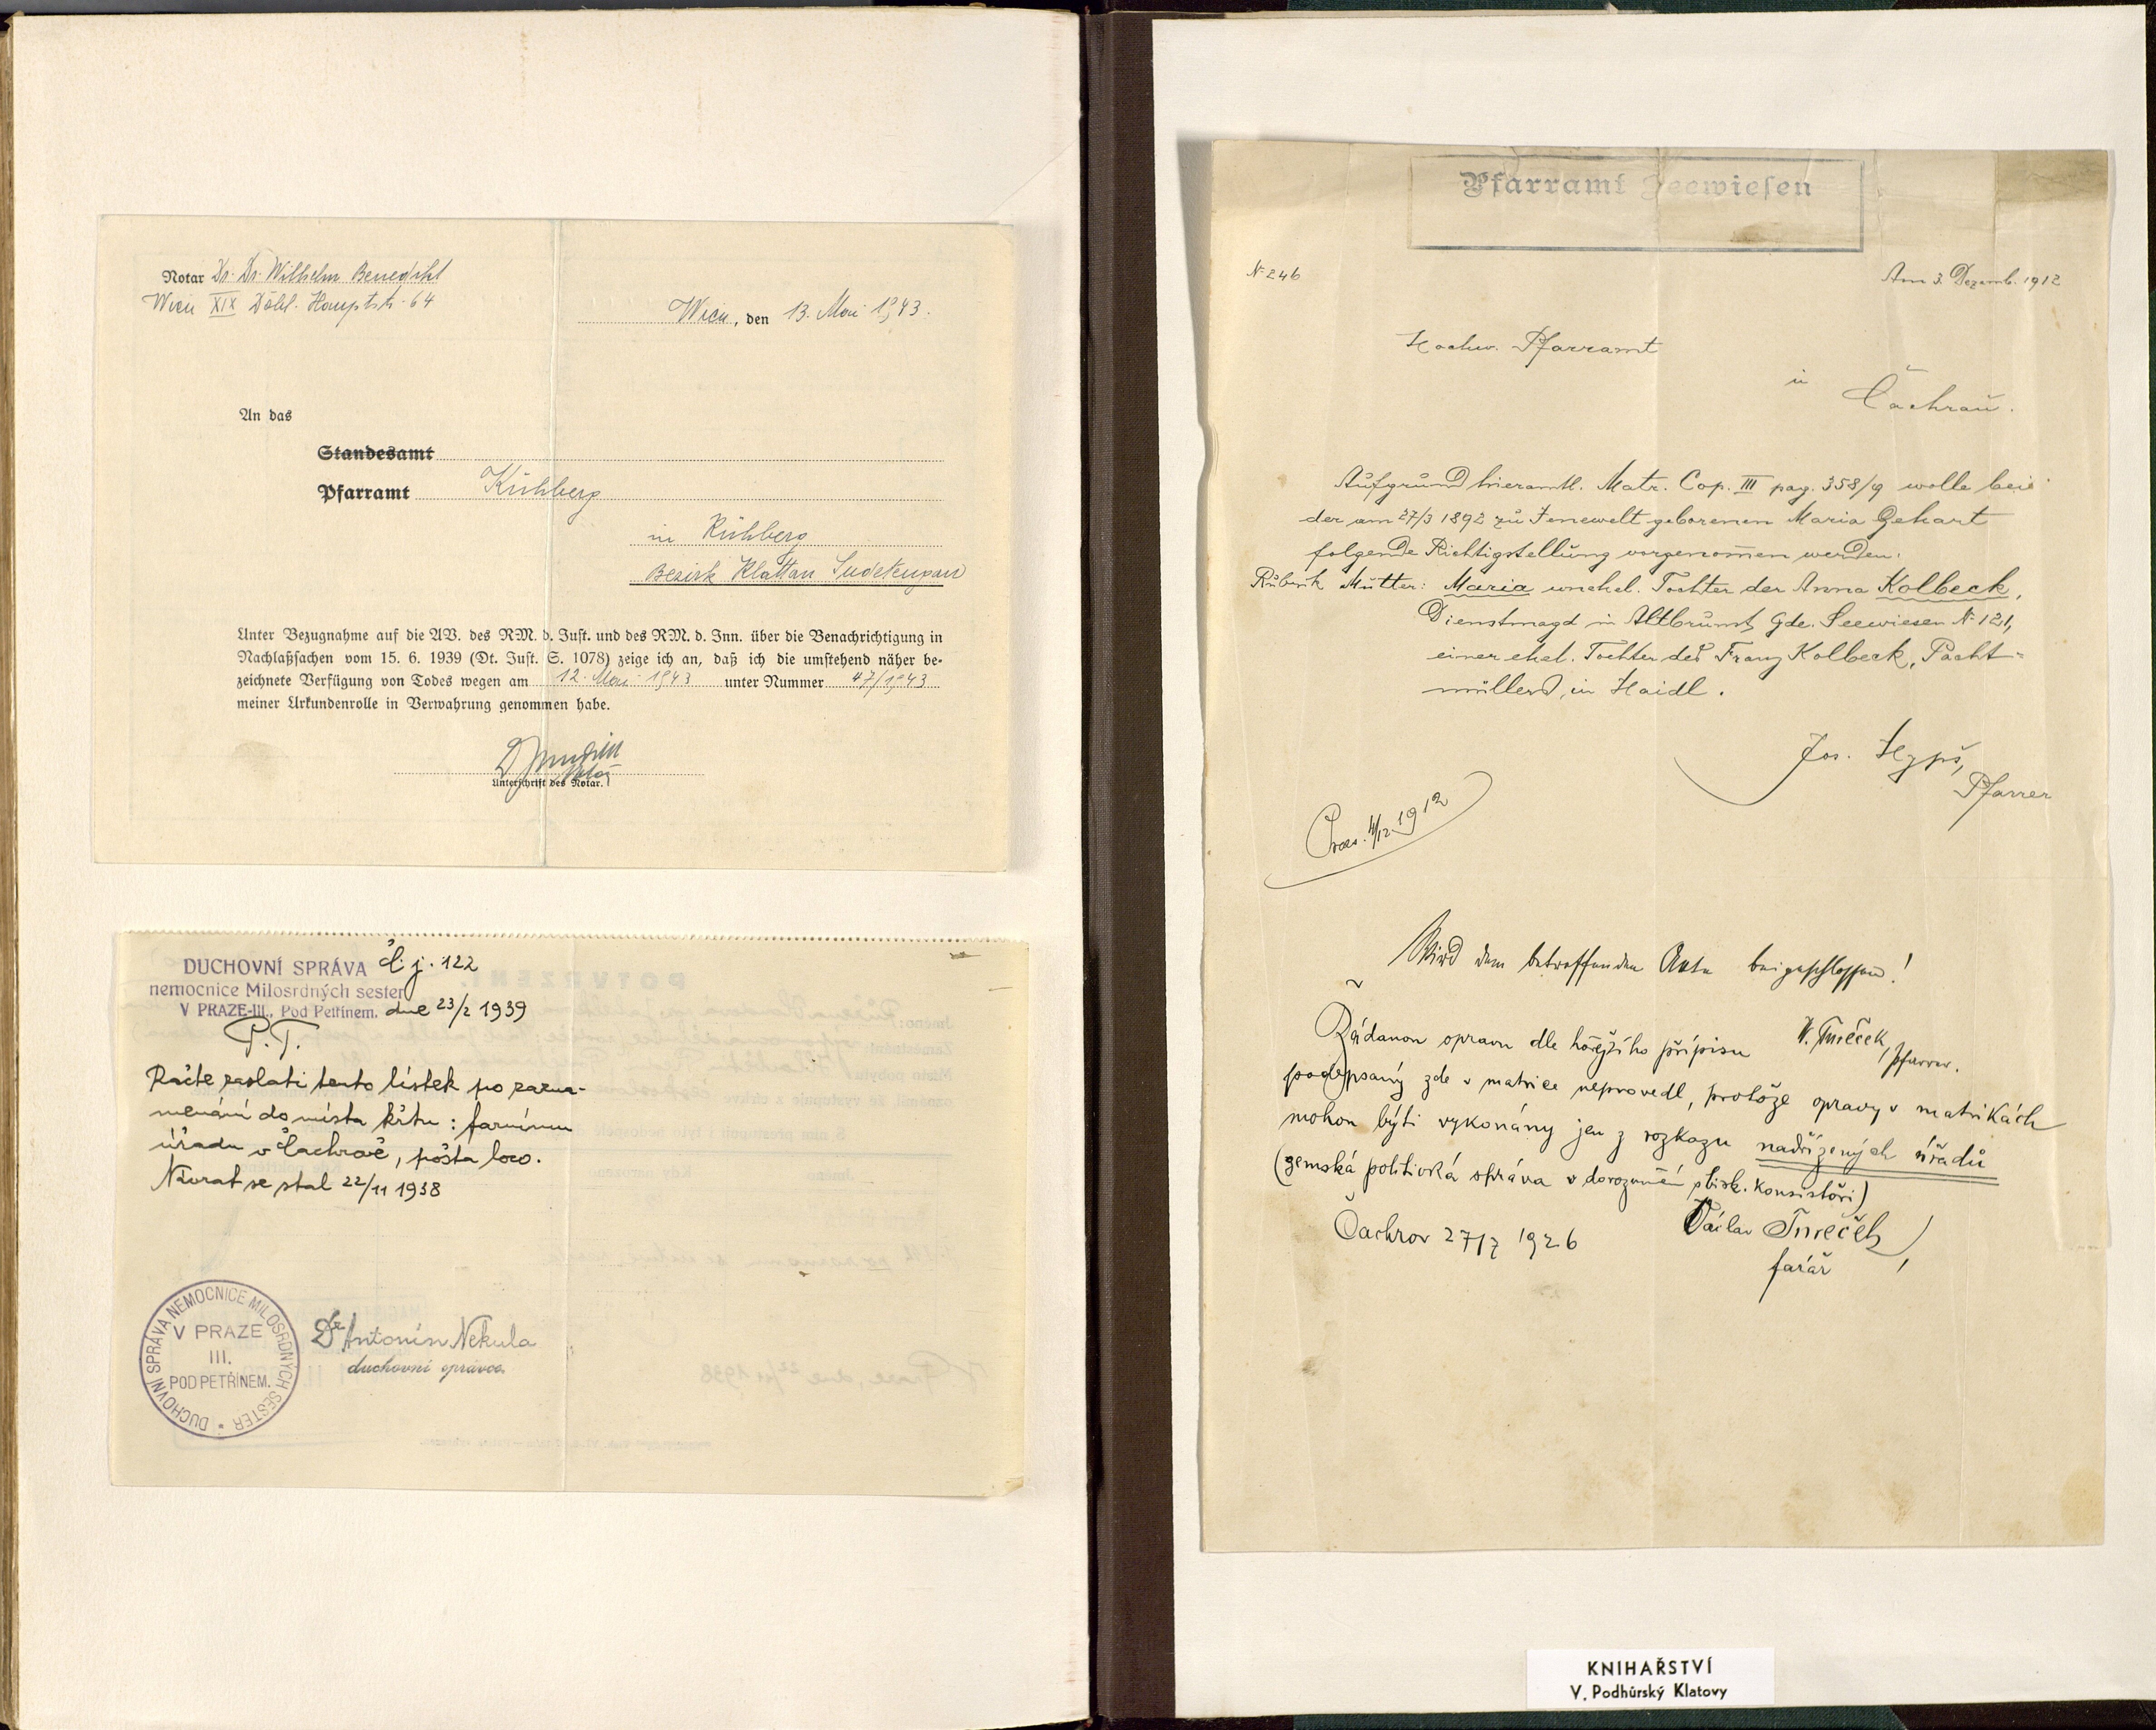 Notar Dr. Dr. Wilhelm Benedikt
Wien XIX Döbl. Hauptstr. 64
Wien, den 13. Mai 1943.
An das
Standesamt
Pfarramt Kühberg
in Kühberg
Bezirk Klattau Sudetengau
Unter Bezugnahme auf die AV. des RM. d. Just. und des RM. d. Inn. über die Benachrichtigung in
Nachlaßsachen vom 15. 6. 1939 (Dt. Just. S. 1078) zeige ich an, daß ich die umstehend näher be-
zeichnete Verfügung von Todes wegen am 12. Mai 1943 unter Nummer 47/1943
meiner Urkundenrolle in Verwahrung genommen habe.
Unterschrift des Notar.
DUCHOVNÍ SPRÁVA Č. j. 122
nemocnice Milosrdných sester
V PRAZE-III., Pod Petřínem. dne 23/2 1939
P. T.
Račte zaslati tento lístek po zazna-
menání do místa křtu: farnímu
úřadu v Čachrově, pošta loco.
Návrat se stal 22/11 1938
DUCHOVNÍ SPRÁVA NEMOCNICE MILOSRDNÝCH SESTER
V PRAZE
III.
POD PETŘÍNEM.
Dr Antonín Nekula
duchovní správce.
Pfarramt Seewiesen
N- 246
Am 3. Dezemb. 1912
Hochw. Pfarramt
in
Čachrau.
Aufgrund hieramtl. Matr. Cop. III pag. 358/9 wolle bei
der am 27/3 1892 zu Jenewelt geborenen Maria Gehart
folgende Richtigstellung vorgenommen werden.
Rubrik Mutter: Maria unehel. Tochter der Anna Kolbeck,
Dienstmagd in Altbrunst, Gde. Seewiesen N- 121,
einer ehel. Tochter des Franz Kolbeck, Pacht-
müllers, in Haidl.
Jos.
Pfarrer
Praes. 4/12 1912
Wird dem betreffenden Akte beigeschlossen!
V. Tureček, Pfarrer.
Žádanou opravu dle hořejšího přípisu
podepsaný zde v matrice neprovedl, protože opravy v matrikách
mohou býti vykonány jen z rozkazu nadřízených úřadů
(zemská politická správa v dorozumění s bisk. konsistoří)
Čachrov 27/7 1926
Václav Tureček,
farář
KNIHAŘSTVÍ
V. Podhůrský Klatovy